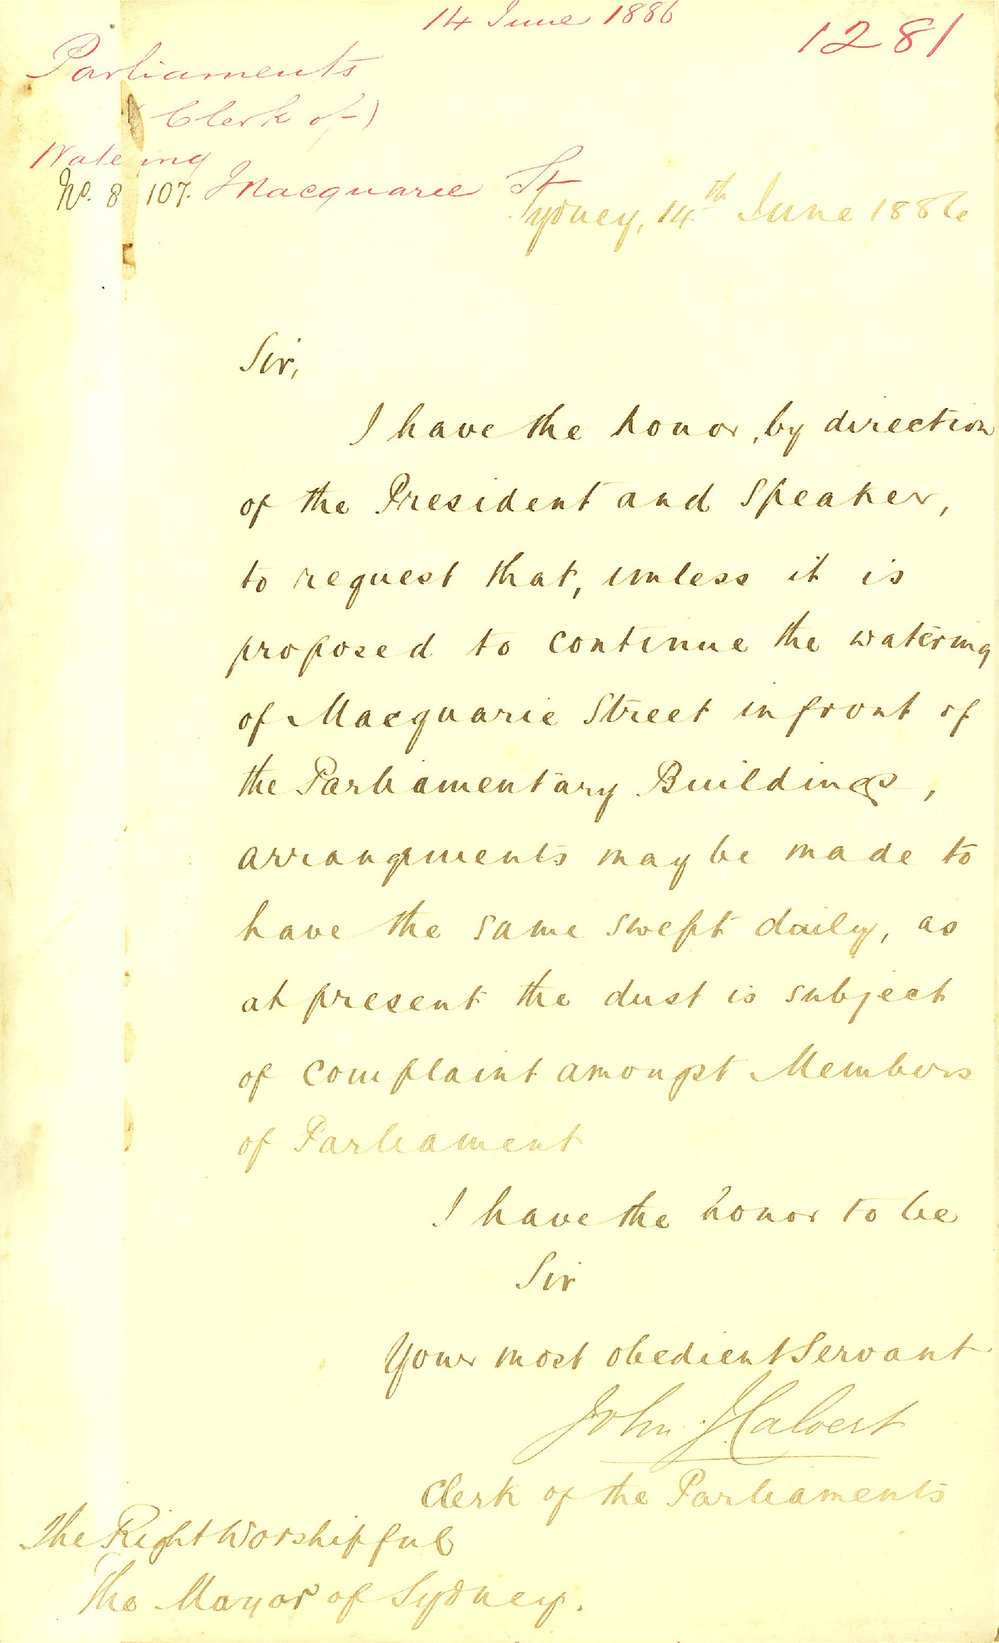 14 June 1886
1281
Parliaments
(Clerk of)
Watering
No. 8 107. Macquarie St
Sydney, 14th June 1886
Sir,
I have the honor, by direction
of the President and Speaker,
to request that, unless it is
proposed to continue the watering
of Macquarie Street in front of
the Parliamentary Buildings,
arrangments may be made to
have the same swept daily, as
at present the dust is subject
of complaint amongst Members
of Parliament
I have the honor to be
Sir
Your most obedient Servant
John J Calvert
Clerk of the Parliaments
The Right Worshipful
The Mayor of Sydney.